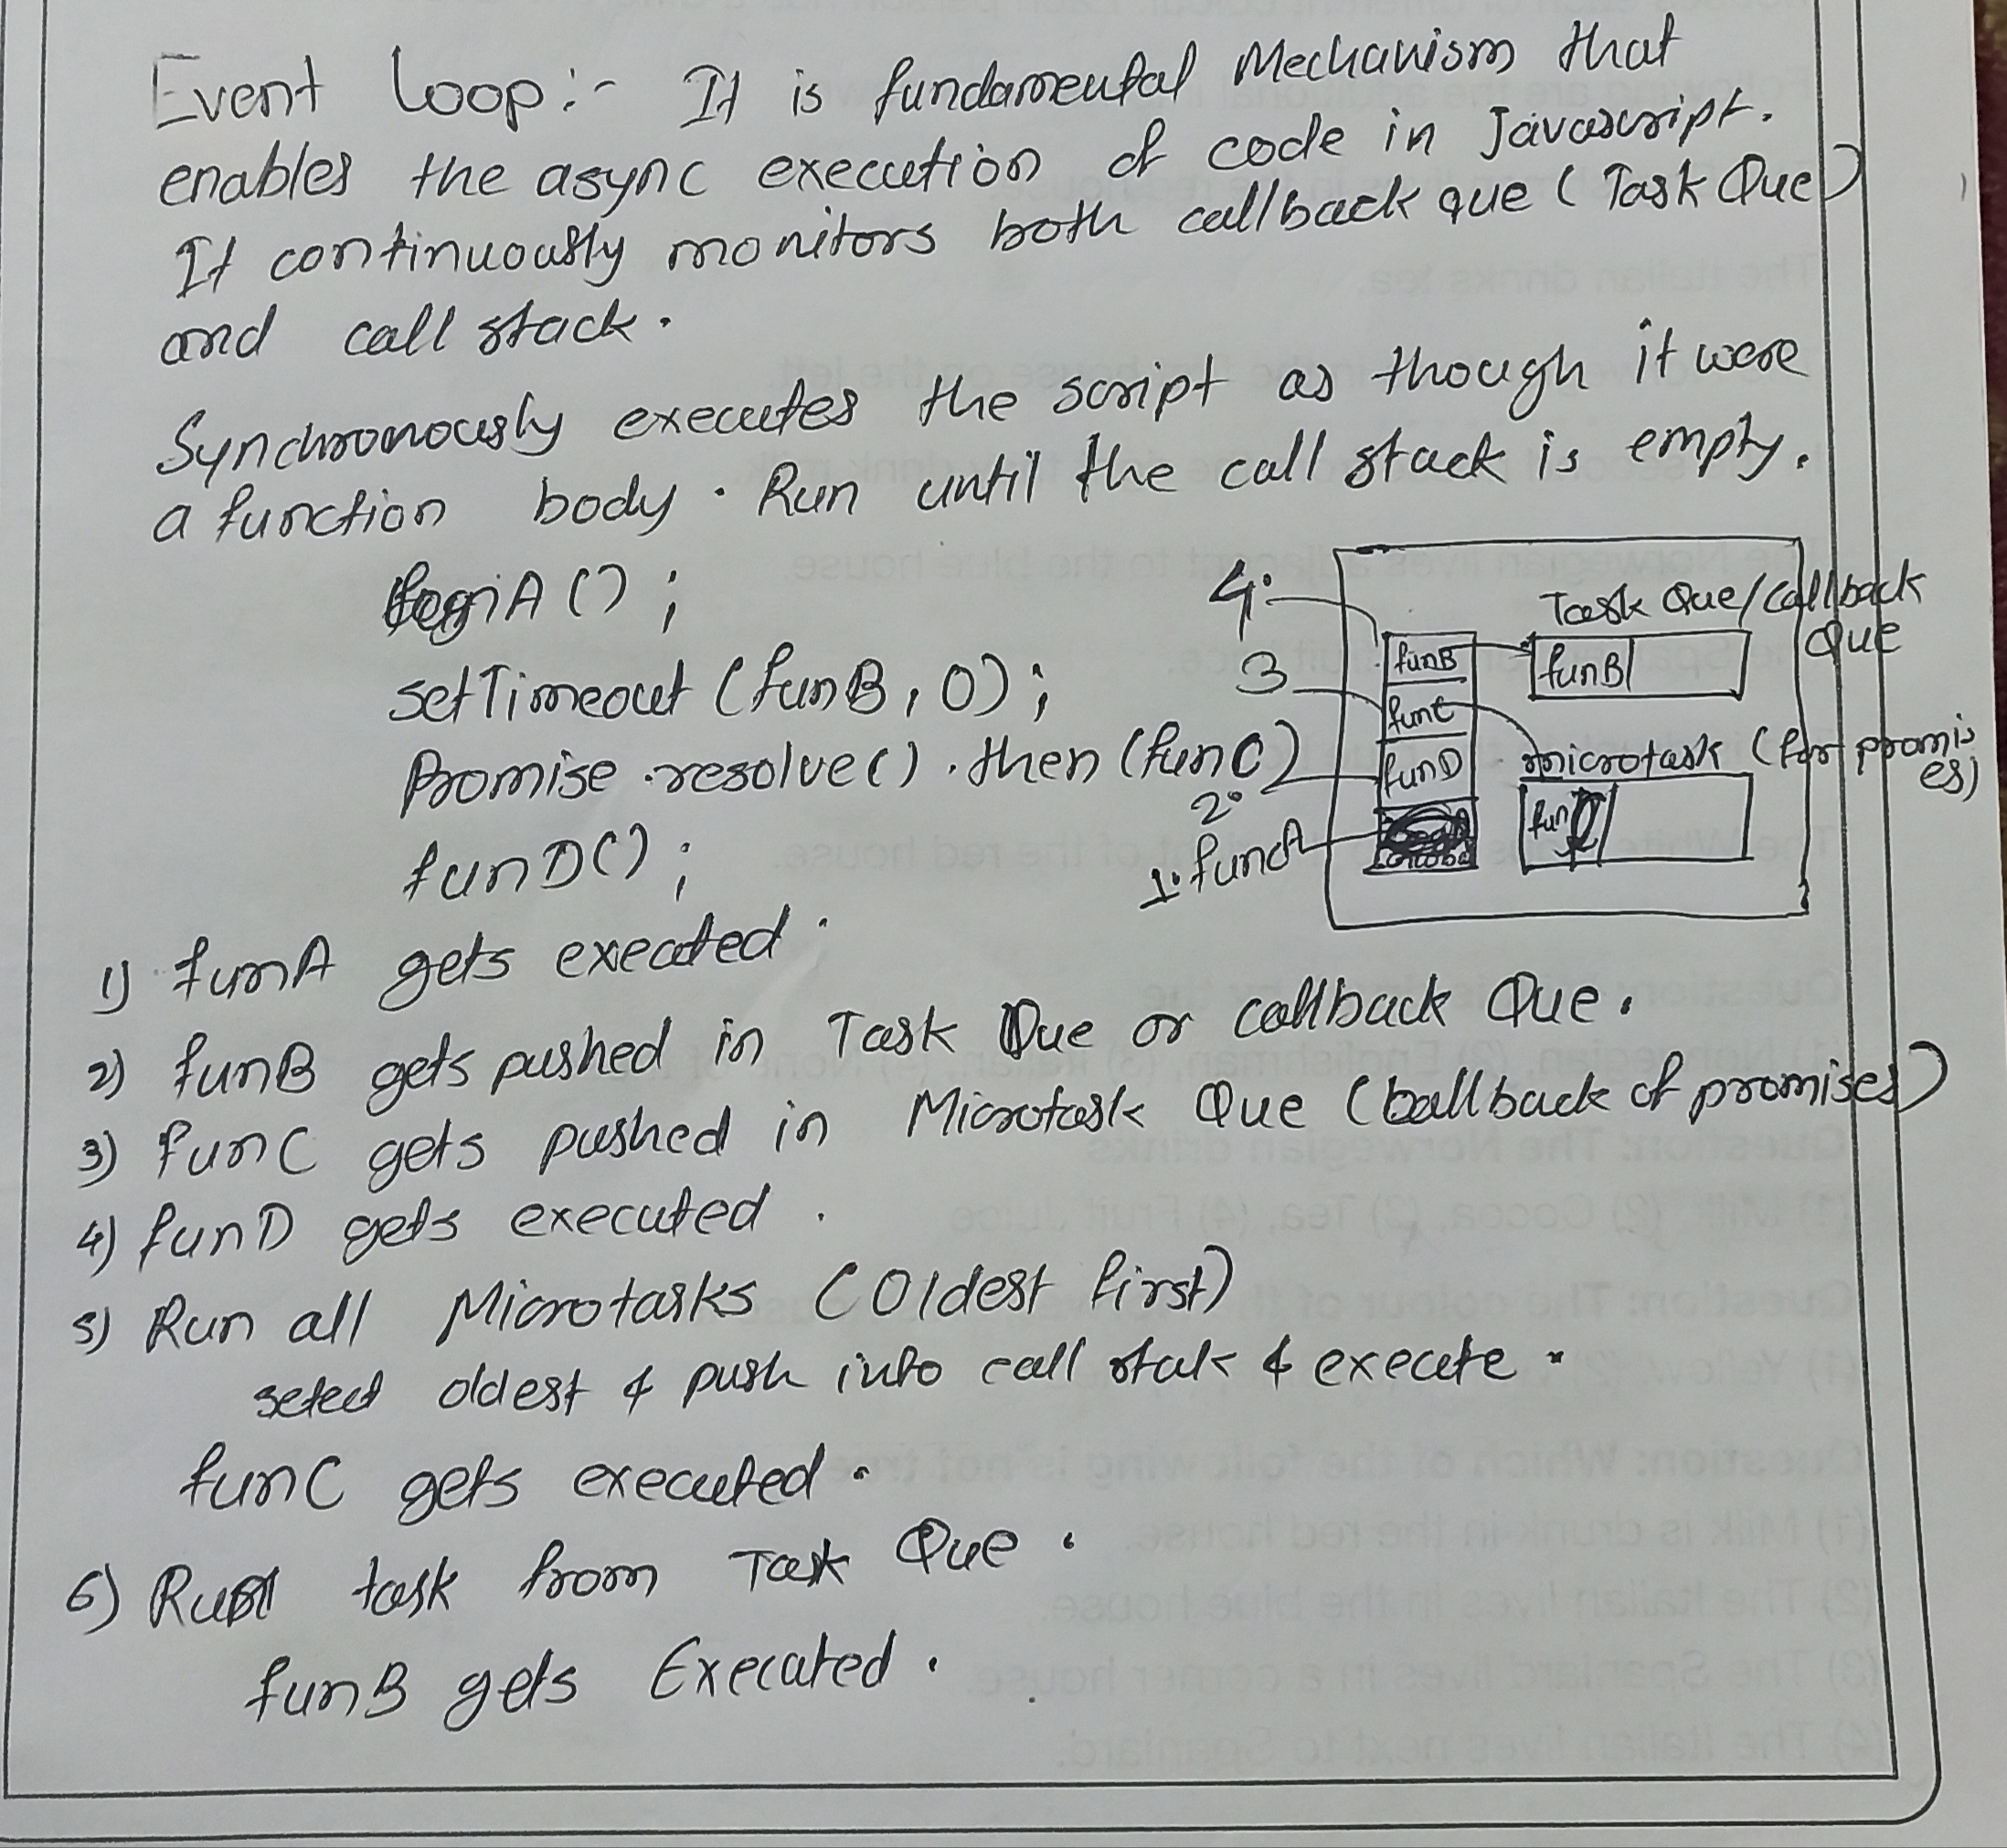 Event Loop :- It is fundamental Mechanism that
enables the async execution of code in Javascript.
It continuously monitors both callback que (Task Que)
and call stack.
Synchronously executes the script as though it were
a function body. Run until the call stack is empty.
A();
setTimeout (funB, 0);
Promise.resolve().then(funC)
funD();
4.
3
2.
1. funcA
funB
funC
funD
Task Que/callback
Que
funB
microtask (for promis
es)
fun
1) funA gets executed.
2) funB gets pushed in Task Que or callback Que.
3) funC gets pushed in Microtask Que (callback of promises)
4) funD gets executed.
5) Run all Microtasks (Oldest first)
select oldest & push into call stak & execute.
funC gets executed.
6) Run task from Task Que.
funB gets Executed.